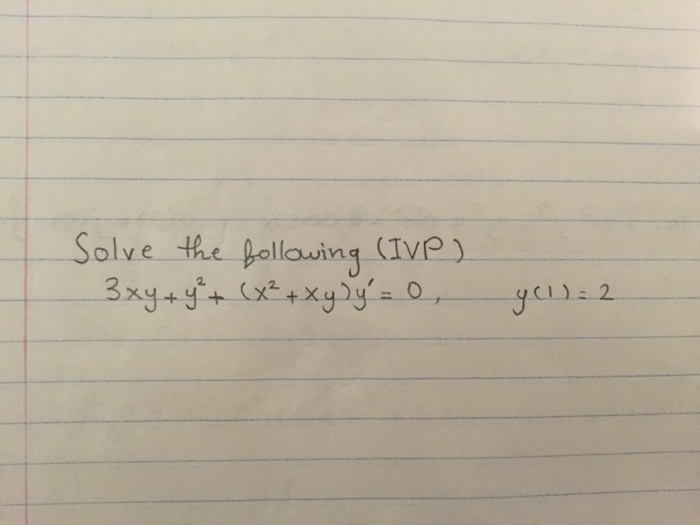 Solve the following (IVP)
3xy + y² + (x² + xy)y' = 0, y(1) = 2